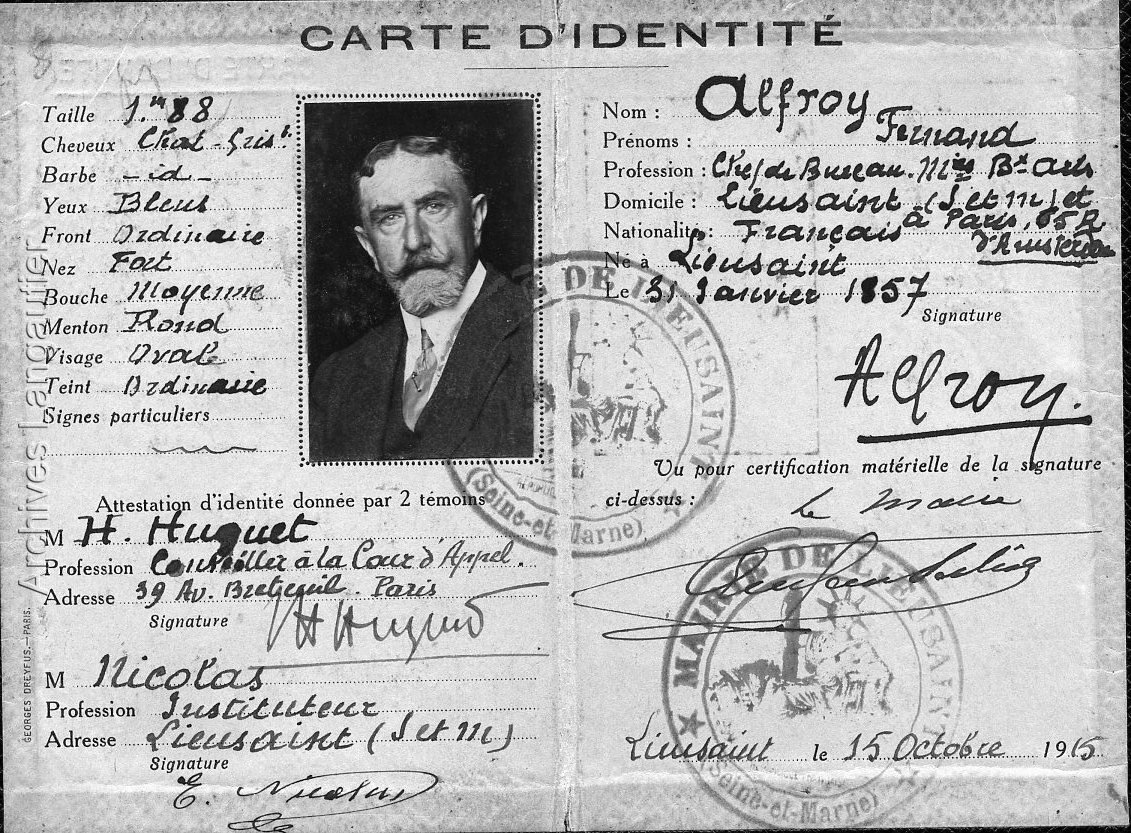 CARTE D'IDENTITÉ
Taille 1.m 88
Cheveux Chat-Gris
Barbe - id -
Yeux Bleus
Front Ordinaire
Nez Fort
Bouche Moyenne
Menton Rond
Visage Oval
Teint Ordinaire
Signes particuliers
Attestation d'identité donnée par 2 témoins
M H. Huguet
Profession Conseiller à la Cour d'Appel.
Adresse 39 Av. Breteuil. Paris
Signature
H Huguet
M Nicolas
Profession Instituteur
Adresse Lieusaint (S et M)
Signature
E. Nicolas
Nom : Alfroy
Prénoms : Fernand
Profession : Chef de Bureau. Mre Bx Arts
Domicile : Lieusaint (S et M) et
à Paris, 65 R
d'Amsterdam
Nationalité : Français
Né à Lieusaint
Le 31 Janvier 1857
Signature
Alfroy.
Vu pour certification matérielle de la signature
ci-dessus :
Le Maire
Lieusaint le 15 Octobre 1915
MAIRIE DE LIEUSAINT
(Seine-et-Marne)
MAIRIE DE LIEUSAINT
(Seine-et-Marne)
GEORGES DREYFUS.—PARIS.
Archives Langaulier